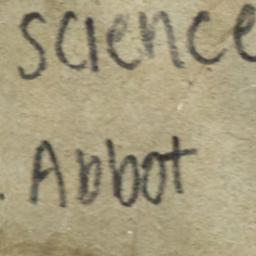 science
. Abbot